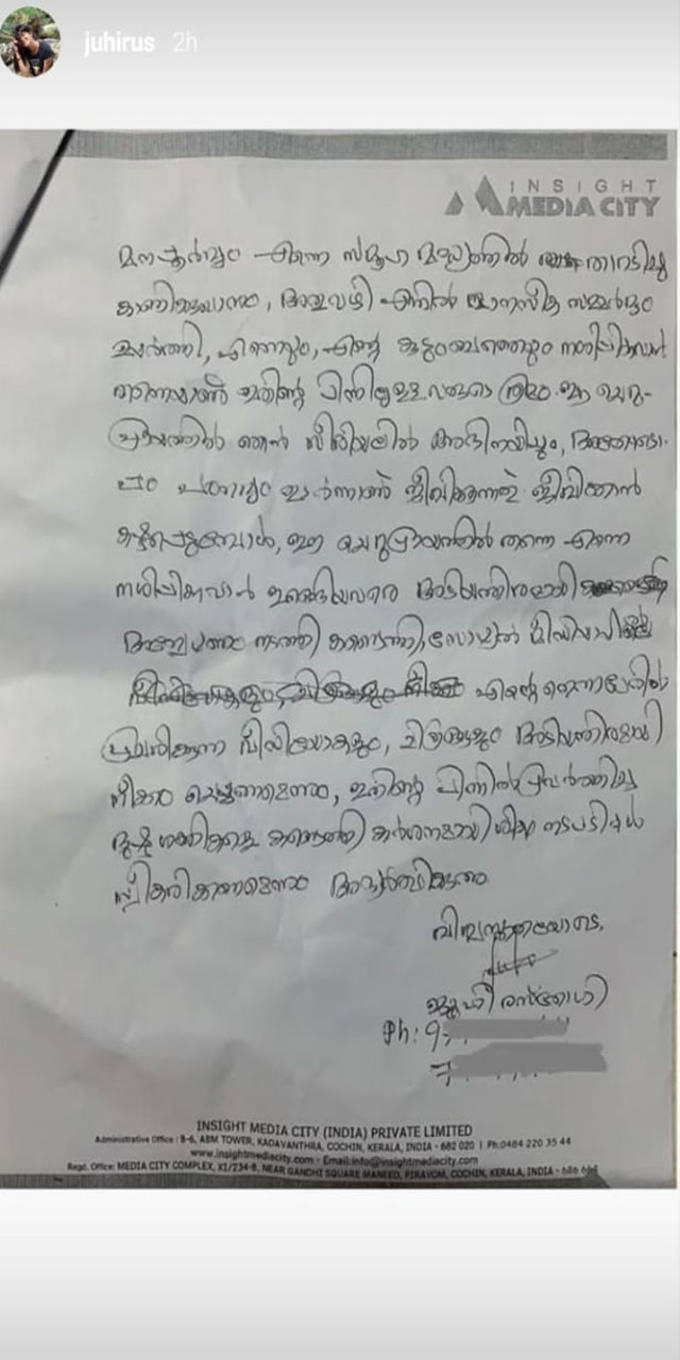 juhirus 2h
INSIGHT
MEDIA CITY
മനഃപൂർവ്വം എന്നെ സമൂഹ മദ്ധ്യത്തിൽ താറടിച്ചു
കാണിക്കുവാനും, അതുവഴി എന്നിൽ മാനസീക സമ്മർദ്ദം
ചെലുത്തി, എന്നെയും, എന്റെ കുടുംബത്തെയും നശിപ്പിക്കുവാൻ
ഇതിന്റെ പിന്നിലുള്ളവരുടെ ശ്രമം. ഈ ചെറു-
പ്രായത്തിൽ ഞാൻ സീരിയലിൽ അഭിനയിച്ചും, അതോടൊ-
പ്പം പഠനവും തുടർന്നാണ് ജീവിക്കുന്നത്. ജീവിക്കാൻ
കഷ്ടപ്പെടുമ്പോൾ, ഈ ചെറുപ്രായത്തിൽ തന്നെ എന്നെ
നശിപ്പിക്കുവാൻ ഇറങ്ങിയവരെ അടിയന്തിരമായി
അന്വേഷണം നടത്തി കണ്ടെത്തി, സോഷ്യൽ മീഡിയായിലെ
എന്റെ പേരിൽ
പ്രചരിക്കുന്ന വീഡിയോകളും, ചിത്രങ്ങളും അടിയന്തിരമായി
നീക്കം ചെയ്യണമെന്നും, ഇതിന്റെ പിന്നിൽ പ്രവർത്തിച്ച
ദുഷ്ട ശക്തികളെ കണ്ടെത്തി കർശനമായ ശിക്ഷ നടപടികൾ
സ്വീകരിക്കണമെന്നും അഭ്യർത്ഥിക്കുന്നു.
വിശ്വസ്തതയോടെ,
ജൂഹി രസ്തോഗി
Ph: 9
7
INSIGHT MEDIA CITY (INDIA) PRIVATE LIMITED
Administrative Office : B-6, ABM TOWER, KADAVANTHRA, COCHIN, KERALA, INDIA - 682 020 I Ph:0484 220 35 44
www.insightmediacity.com - Email:info@insightmediacity.com
Regd. Office: MEDIA CITY COMPLEX, XI/234-B, NEAR GANDHI SQUARE MANEED, PIRAVOM, COCHIN, KERALA, INDIA - 686 664